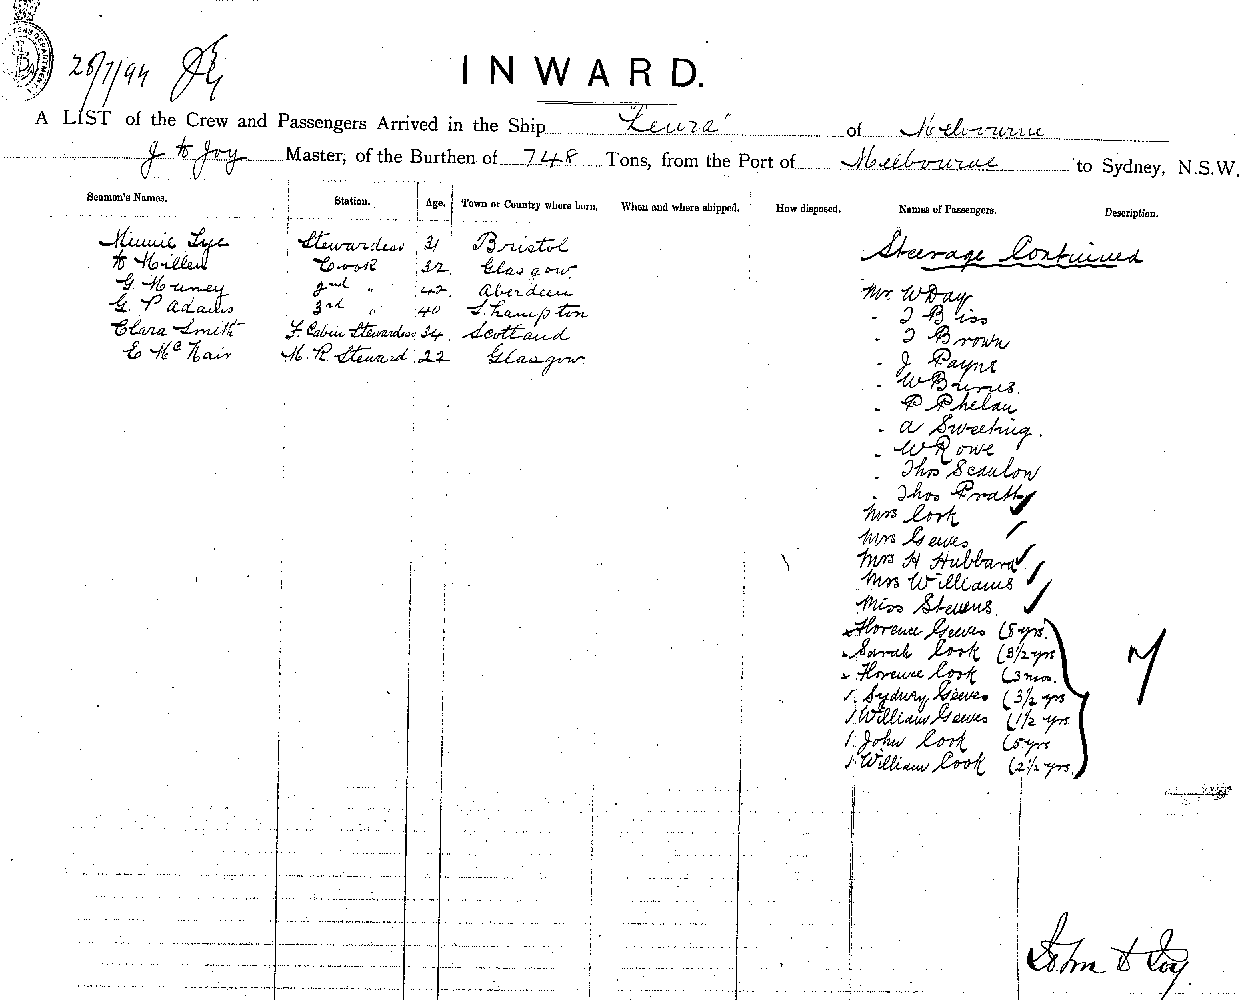 28/7/94
INWARD.
A LIST of the Crew and Passengers Arrived in the Ship "Leura" of Melbourne
Joy Master, of the Burthen of 748 Tons, from the Port of Melbourne to Sydney, N.S.W.
Seamen's Names. Station. Age. Town or Country where born. When and where shipped. How disposed. Names of Passengers. Description.
Minnie Lye Stewardess 31 Bristol
Millen Cook 32 Glasgow
G. 2nd " 42 Aberdeen
G. P Adams 3rd " 40 S.hampton
Clara Smith F. Cabin Stewardess 34 Scotland
E McNair M. R. Steward 22 Glasgow
Steerage Continued
Mr. W Day
- T Biss
- T Brown
- J Payne
- W Burns
- P Phelan
- A Sweeting.
- W Rowe
- Thos Scanlon
- Thos Pratt
Mrs Cook
Mrs Geeves
Mrs H Hubbard
Mrs Williams
Miss Stevens
Florence Geeves (5 yrs.
Sarah Cook (3 1/2 yrs
Florence Cook (3 mos.
Sydney Geeves (3 1/2 yrs
William Geeves (1 1/2 yrs
John Cook (5 yrs
William Cook (2 1/2 yrs.
7
John Joy